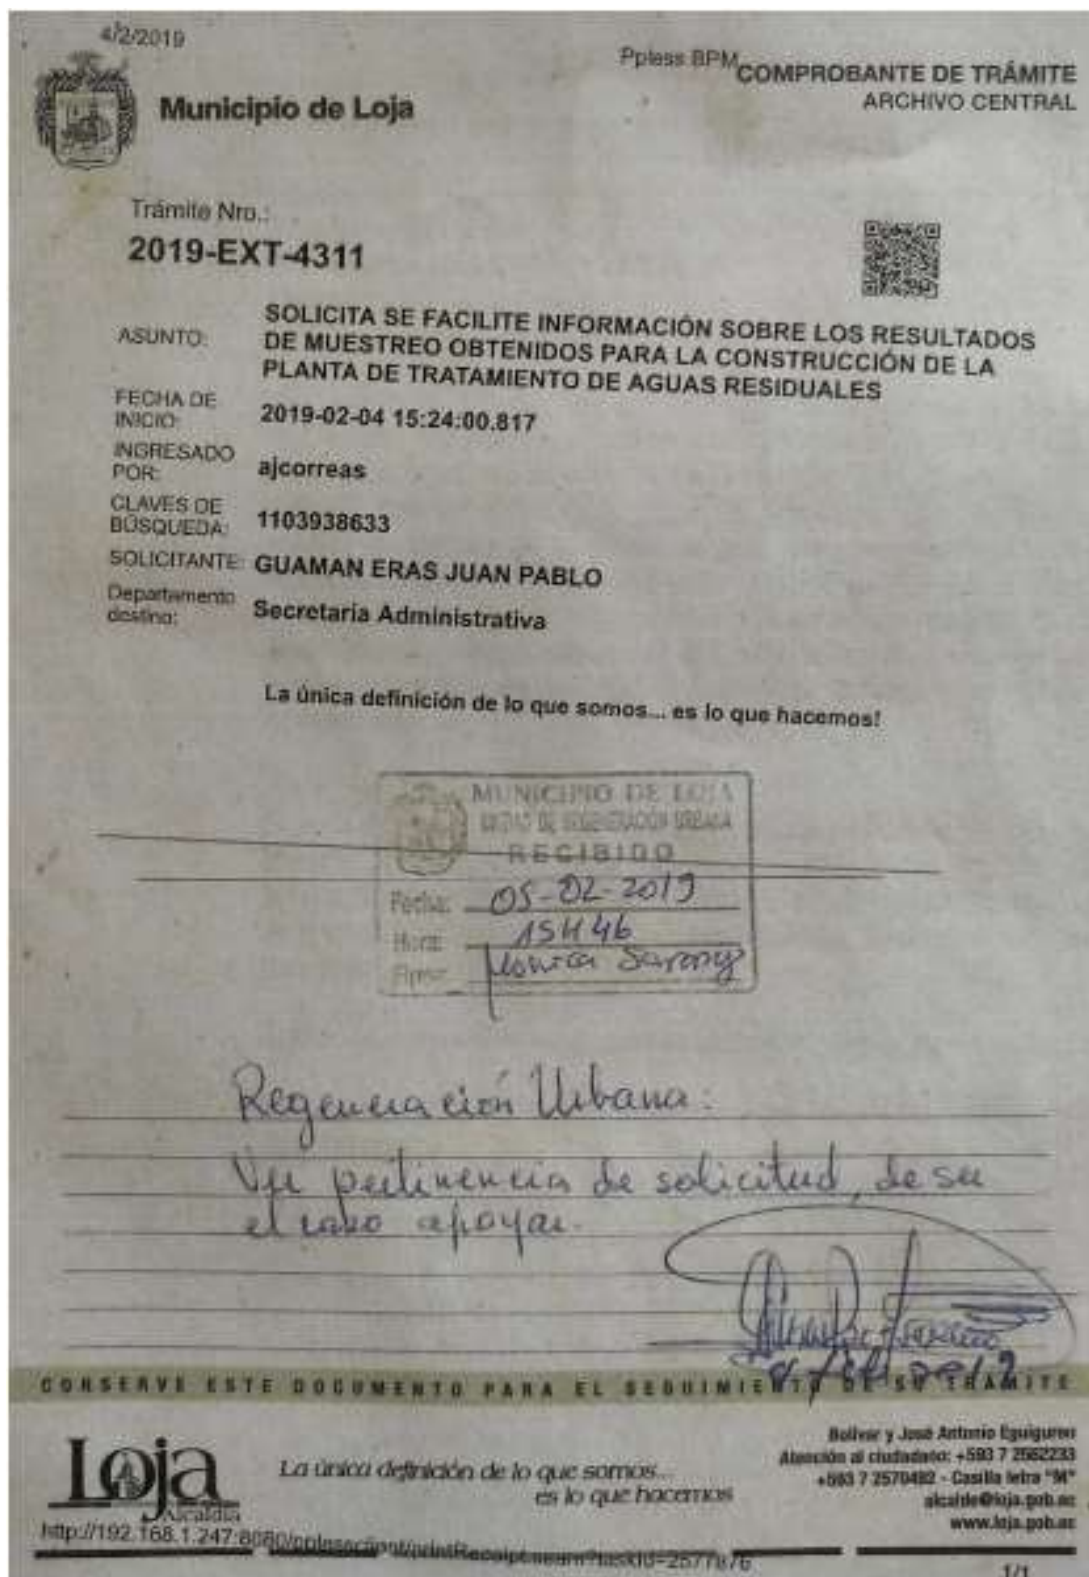 4/2/2019
Ppless BPM
COMPROBANTE DE TRÁMITE
ARCHIVO CENTRAL
Municipio de Loja
Trámite Nro.:
2019-EXT-4311
ASUNTO: SOLICITA SE FACILITE INFORMACIÓN SOBRE LOS RESULTADOS
DE MUESTREO OBTENIDOS PARA LA CONSTRUCCIÓN DE LA
PLANTA DE TRATAMIENTO DE AGUAS RESIDUALES
FECHA DE
INICIO: 2019-02-04 15:24:00.817
INGRESADO
POR: ajcorreas
CLAVES DE
BÚSQUEDA: 1103938633
SOLICITANTE: GUAMAN ERAS JUAN PABLO
Departamento
destino: Secretaria Administrativa
La única definición de lo que somos... es lo que hacemos!
MUNICIPIO DE LOJA
UNIDAD DE REGENERACIÓN URBANA
RECIBIDO
Fecha: 05-02-2019
Hora: 15H46
Firma: Monica
Regeneración Urbana:
Ver pertinencia de solicitud, de ser
el caso apoyar.
CONSERVE ESTE DOCUMENTO PARA EL SEGUIMIENTO DE SU TRÁMITE
Loja
Alcaldía
La única definición de lo que somos...
es lo que hacemos
Bolívar y José Antonio Eguiguren
Atención al ciudadano: +593 7 2562233
+593 7 2570482 - Casilla letra "M"
alcalde@loja.gob.ec
www.loja.gob.ec
http://192.168.1.247:8080/
taskId=2577876
1/1